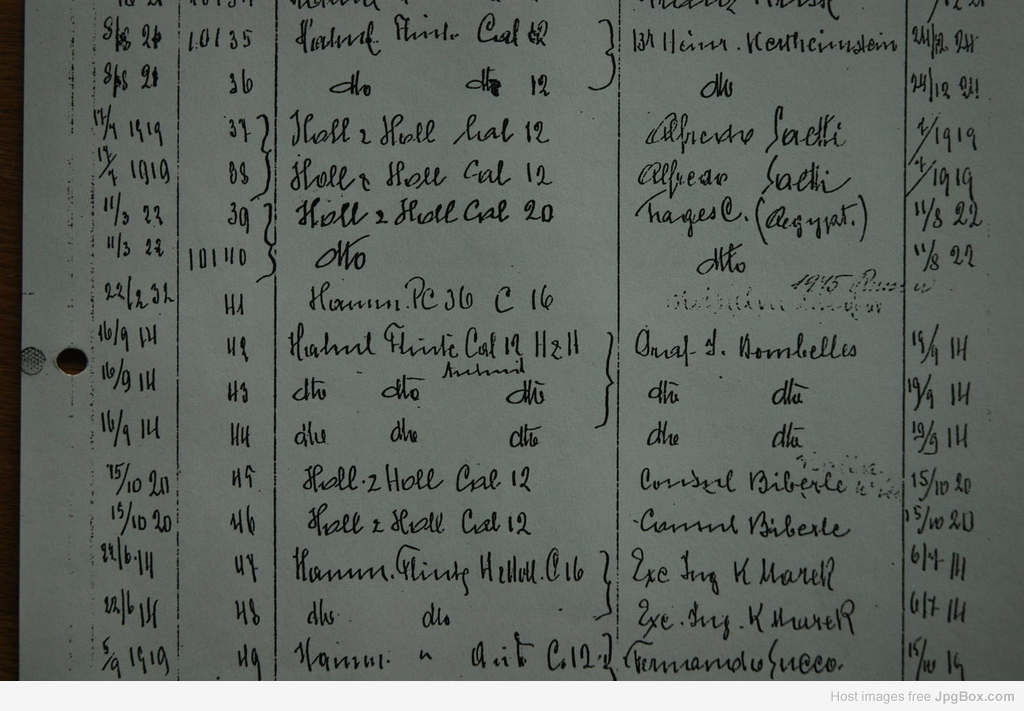 8/8 21 10135 Hahnl. Flinte Cal 12 Br Heinr. Kertheimstein 24/12 21
8/8 21 36 dto dto 12 dto 24/12 21
17/7 1919 37 Holl & Holl Cal 12 Alfredo Saetti 7/1919
17/7 1919 38 Holl & Holl Cal 12 Alfredo Saetti 7/1919
11/3 22 39 Holl & Holl Cal 20 Trages C. (Aegypt.) 11/8 22
11/3 22 10140 dto dto 11/8 22
22/2 32 41 Hamm. PC 36 C 16 1945
16/9 14 42 Hahnl Flinte Cal 12 H & H Graf J. Bombelles 19/9 14
16/9 14 43 dto dto dto dto dto 19/9 14
16/9 14 44 dto dto dto dto dto 19/9 14
15/10 20 45 Holl & Holl Cal 12 Consul Biberle 15/10 20
15/10 20 46 Holl & Holl Cal 12 Consul Biberle 15/10 20
22/6 14 47 Hamm. Flinte H & Holl. C 16 Exc Ing K Marek 6/7 14
22/6 14 48 dto dto Exc. Ing. K Marek 6/7 14
5/9 1919 49 Hamm. " C. 12 Fernando Succo. 15/10 19
Host images free JpgBox.com